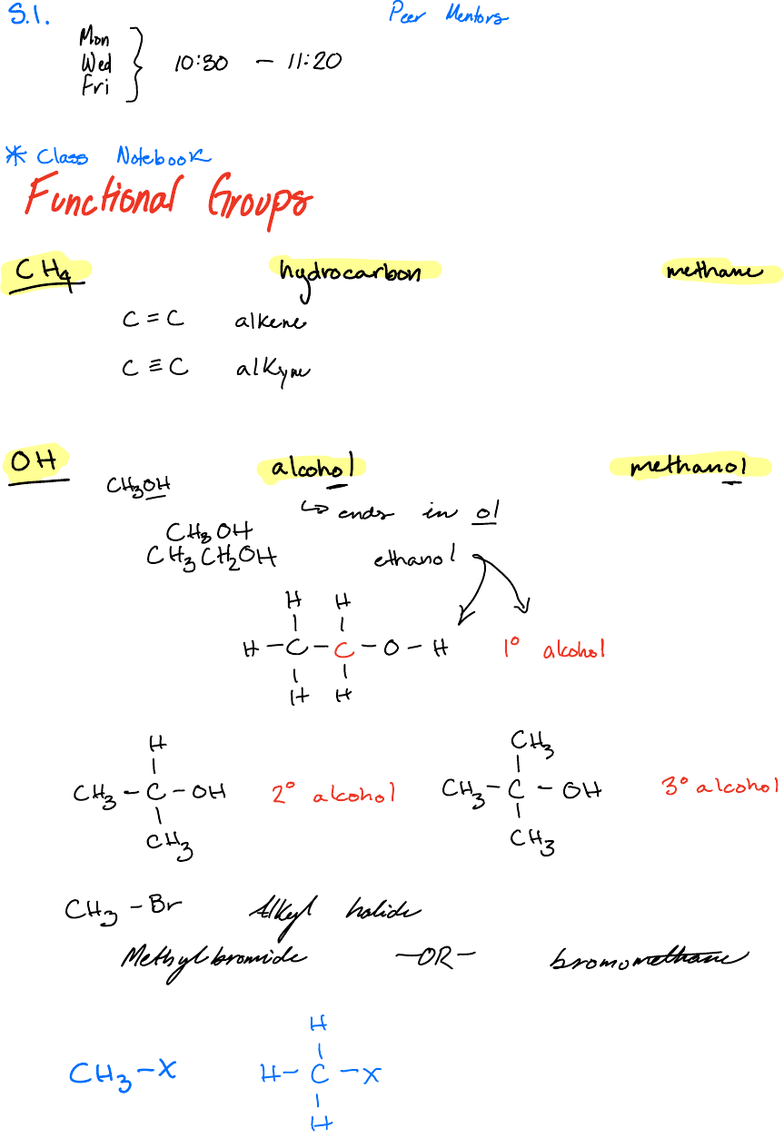 S.I. Peer Mentors
Mon
Wed 10:30 - 11:20
Fri
* Class Notebook
Functional Groups
CH4 hydrocarbon methane
C = C alkene
C ≡ C alkyne
OH alcohol methanol
CH3OH
↳ ends in ol
CH3OH
CH3CH2OH ethanol
H H
H - C - C - O - H 1° alcohol
H H
H
CH3 - C - OH 2° alcohol
CH3
CH3
CH3 - C - OH 3° alcohol
CH3
CH3 - Br Alkyl halide
Methylbromide -OR- bromomethane
H
CH3-X H- C -X
H